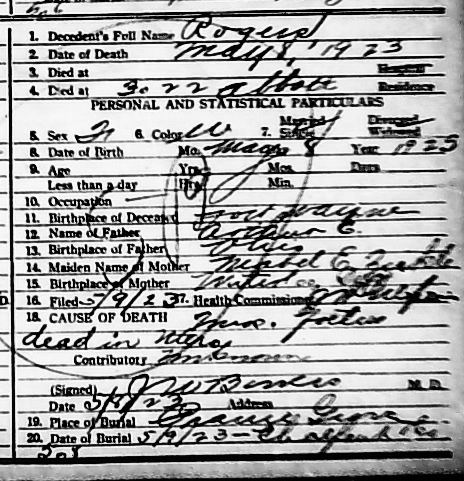 1. Decedent's Full Name Rogers
2. Date of Death May 8, 1923
3. Died at Hospital
4. Died at 3022 Abbott Residence
PERSONAL AND STATISTICAL PARTICULARS
Married Divorced
5. Sex F 6. Color W 7. Single Widowed
8. Date of Birth Mo. May 8 Year 1923
9. Age Yrs. Mos. Days
Less than a day Hrs. Min.
10. Occupation
11. Birthplace of Deceased Fort Wayne
12. Name of Father Arthur E.
13. Birthplace of Father Ohio
14. Maiden Name of Mother Mabel E.
15. Birthplace of Mother
16. Filed 5/9/23 17. Health Commissioner
18. CAUSE OF DEATH Foetus
dead in utero
Contributory Unknown
(Signed) M. D.
Date 5/9/23 Address
19. Place of Burial Prairie Grove
20. Date of Burial 5/9/23 Chalfant